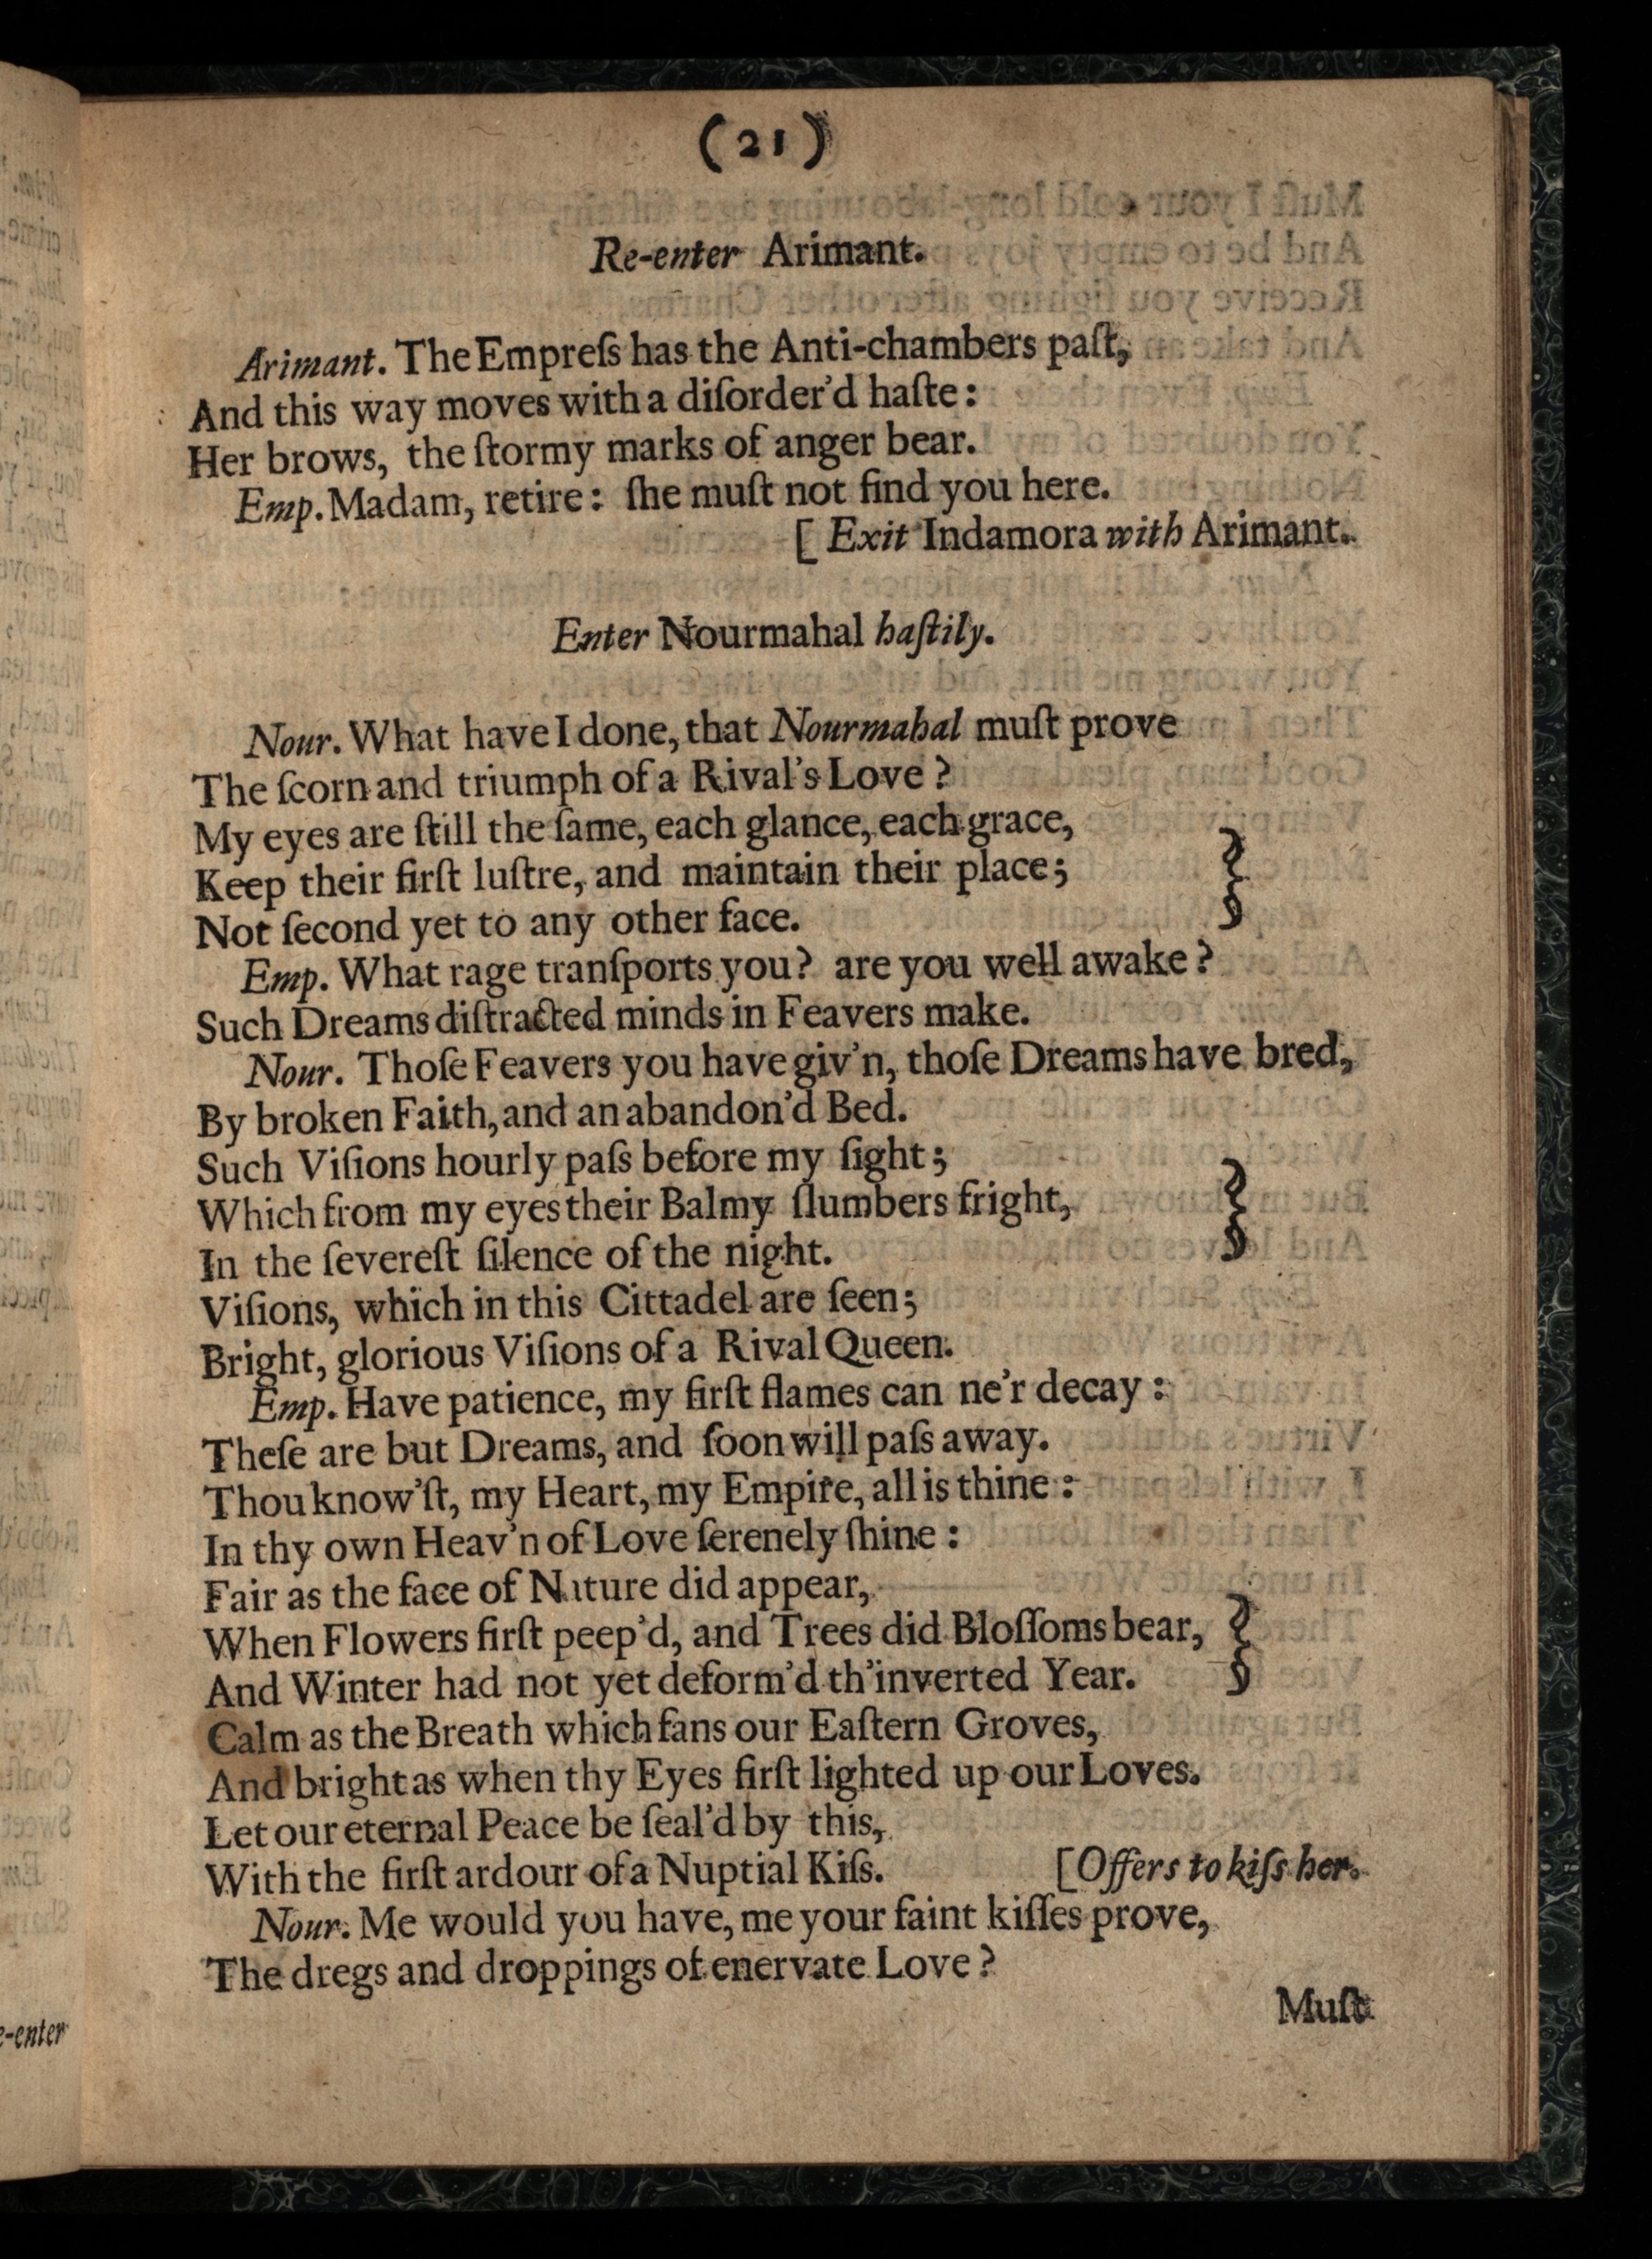 (21)
Re-enter Arimant.
Arimant. The Empreſs has the Anti-chambers paſt,
And this way moves with a diſorder'd haſte:
Her brows, the ſtormy marks of anger bear.
Emp. Madam, retire: ſhe muſt not find you here.
[Exit Indamora with Arimant.
Enter Nourmahal haſtily.
Nour. What have I done, that Nourmahal muſt prove
The ſcorn and triumph of a Rival's Love?
My eyes are ſtill the ſame, each glance, each grace,
Keep their firſt luſtre, and maintain their place;
Not ſecond yet to any other face.
Emp. What rage tranſports you? are you well awake?
Such Dreams diſtracted minds in Feavers make.
Nour. Thoſe Feavers you have giv'n, thoſe Dreams have bred,
By broken Faith, and an abandon'd Bed.
Such Viſions hourly paſs before my ſight;
Which from my eyes their Balmy ſlumbers fright,
In the ſevereſt ſilence of the night.
Viſions, which in this Cittadel are ſeen;
Bright, glorious Viſions of a Rival Queen.
Emp. Have patience, my firſt flames can ne'r decay:
Theſe are but Dreams, and ſoon will paſs away.
Thou know'ſt, my Heart, my Empire, all is thine:
In thy own Heav'n of Love ſerenely ſhine:
Fair as the face of Nature did appear,
When Flowers firſt peep'd, and Trees did Bloſſoms bear,
And Winter had not yet deform'd th'inverted Year.
Calm as the Breath which fans our Eaſtern Groves,
And bright as when thy Eyes firſt lighted up our Loves.
Let our eternal Peace be ſeal'd by this,
With the firſt ardour of a Nuptial Kiſs. [Offers to kiſs her.
Nour. Me would you have, me your faint kiſſes prove,
The dregs and droppings of enervate Love?
Muſt
e-enter